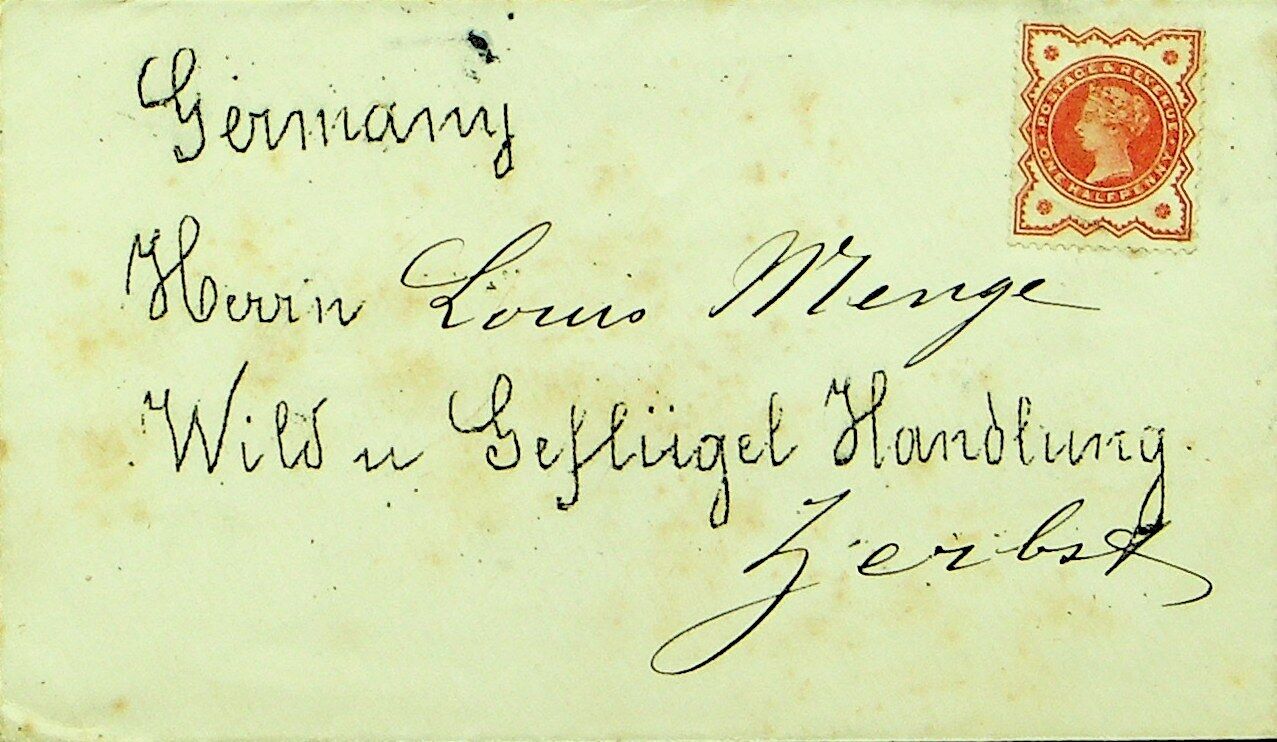 Germany
POSTAGE & REVENUE
ONE HALFPENNY
Herrn Louis Menge
Wild u Geflügel Handlung.
Zerbst